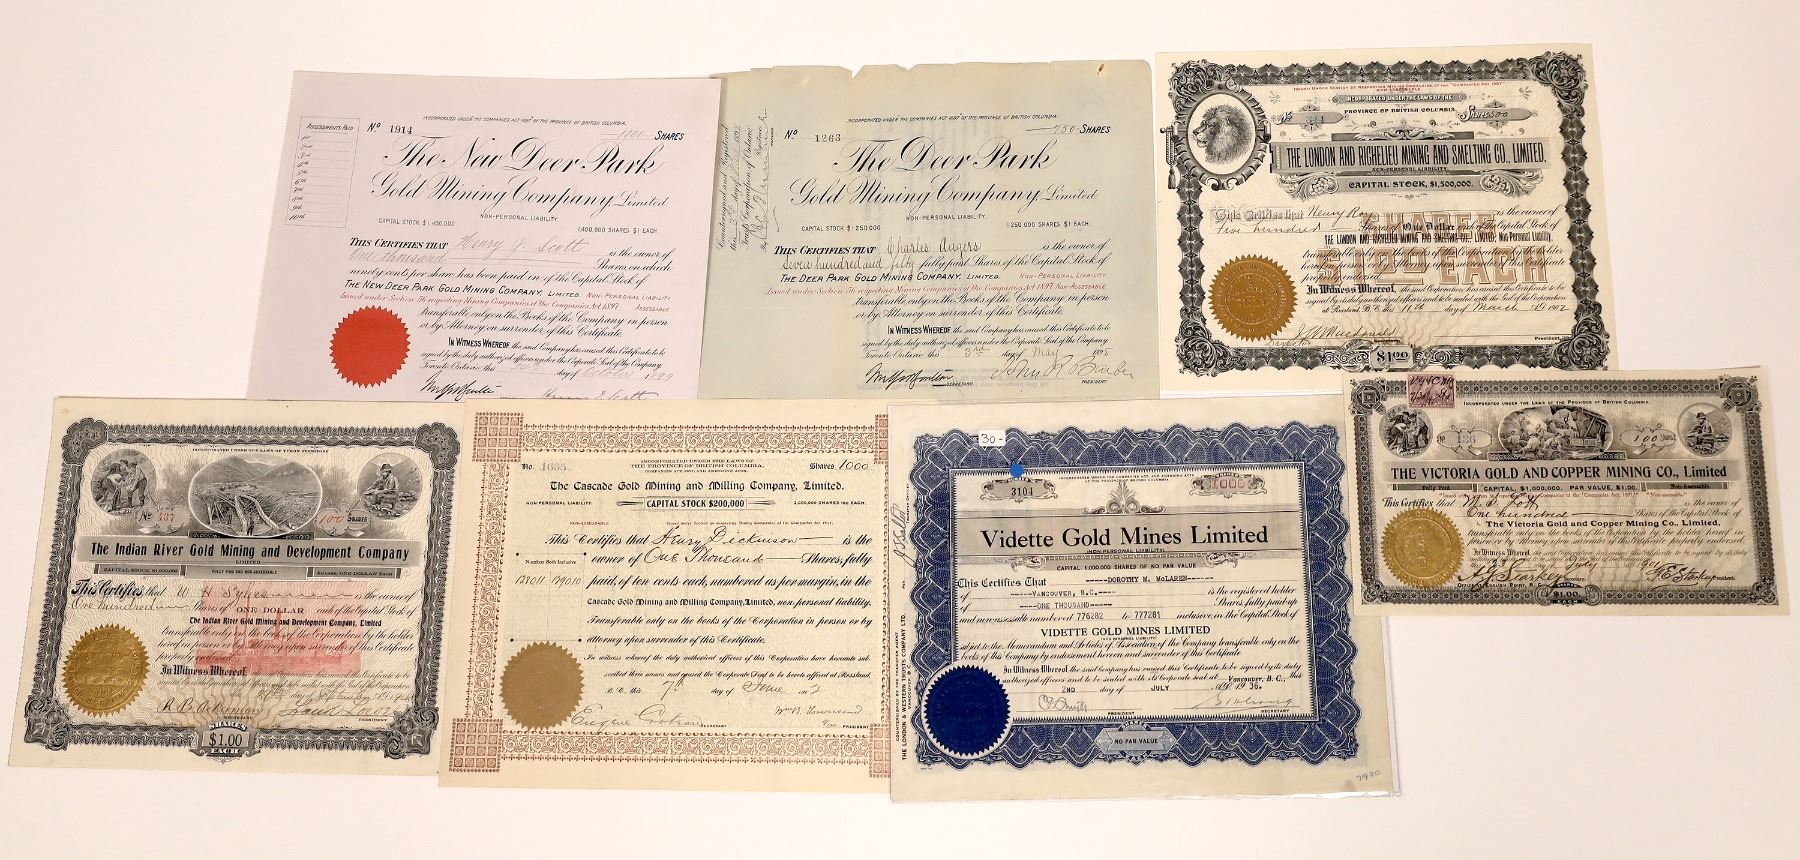 ASSESSMENTS PAID
1st
2nd
3rd
4th
5th
6th
7th
8th
9th
10th
INCORPORATED UNDER THE COMPANIES ACT 1897 OF THE PROVINCE OF BRITISH COLUMBIA.
No 1914
1000 SHARES
The New Deer Park
Gold Mining Company Limited
NON-PERSONAL LIABILITY.
CAPITAL STOCK $1,400,000
1,400,000 SHARES $1 EACH.
THIS CERTIFIES THAT Henry J. Scott is the owner of
One thousand Shares, on which
ninety cents per share has been paid in, of the Capital Stock of
THE NEW DEER PARK GOLD MINING COMPANY, LIMITED. NON-PERSONAL LIABILITY
Issued under Section 56 respecting Mining Companies of the Companies Act 1897 ASSESSABLE
Transferable only on the Books of the Company in person
or by Attorney on surrender of this Certificate
IN WITNESS WHEREOF the said Company has caused this Certificate to be
signed by the duly authorized officers under the Corporate Seal of the Company
Toronto Ontario this day of 1899
INCORPORATED UNDER THE COMPANIES ACT 1897 OF THE PROVINCE OF BRITISH COLUMBIA.
No 1263
750 SHARES
The Deer Park
Gold Mining Company Limited
NON-PERSONAL LIABILITY.
CAPITAL STOCK $1,250,000
1,250,000 SHARES $1 EACH.
Countersigned and Registered
THIS CERTIFIES THAT Charles Angers is the owner of
Seven hundred and fifty fully paid Shares of the Capital Stock of
THE DEER PARK GOLD MINING COMPANY, LIMITED. NON-PERSONAL LIABILITY
Issued under Section 56 respecting Mining Companies of the Companies Act 1897 NON-ASSESSABLE
Transferable only on the Books of the Company in person
or by Attorney on surrender of this Certificate
IN WITNESS WHEREOF the said Company has caused this Certificate to be
signed by the duly authorized officers under the Corporate Seal of the Company
Toronto Ontario this 3rd day of May 1898
SECRETARY
PRESIDENT.
INCORPORATED UNDER THE LAWS OF THE
PROVINCE OF BRITISH COLUMBIA.
Shares 500
THE LONDON AND RICHELIEU MINING AND SMELTING CO., LIMITED.
NON-PERSONAL LIABILITY
CAPITAL STOCK, $1,500,000.
This Certifies that Henry Roy is the owner of
Five hundred Shares of One Dollar each of the Capital Stock of
THE LONDON AND RICHELIEU MINING AND SMELTING CO., LIMITED, Non-Personal Liability,
transferable only on the Books of the Corporation by the holder
hereof in person or by Attorney upon surrender of this Certificate
properly endorsed
SHARES $1.00 EACH
In Witness Whereof, the said Corporation has caused this Certificate to be
signed by its duly authorized officers and to be sealed with the Seal of the Corporation
at Rossland, B.C. this 11th day of March 1902
Director
President.
$1.00
INCORPORATED UNDER THE LAWS OF YUKON TERRITORY
No 137
100 SHARES
The Indian River Gold Mining and Development Company
LIMITED
CAPITAL STOCK $1,000,000
FULLY PAID AND NON-ASSESSABLE
SHARES, ONE DOLLAR EACH
This Certifies that W H Sykes is the owner of
One hundred Shares of ONE DOLLAR each of the Capital Stock of
The Indian River Gold Mining and Development Company, Limited
transferable only on the books of the Corporation by the holder
hereof in person or by Attorney upon surrender of this Certificate
properly endorsed
In Witness Whereof,
SECRETARY
PRESIDENT
SHARES
$1.00
EACH
INCORPORATED UNDER THE LAWS OF
THE PROVINCE OF BRITISH COLUMBIA.
No. 1685
Shares 1000
The Cascade Gold Mining and Milling Company, Limited.
NON-PERSONAL LIABILITY.
CAPITAL STOCK $200,000
2,000,000 SHARES 10c EACH.
NON-ASSESSABLE.
Issued under Section 56 respecting Mining Companies of the Companies Act 1897.
Numbers Both Inclusive
This Certifies that Henry Dickinson is the
owner of One Thousand Shares, fully
paid, of ten cents each, numbered as per margin, in the
Cascade Gold Mining and Milling Company, Limited, non-personal liability.
Transferable only on the books of the Corporation in person or by
attorney upon surrender of this Certificate.
In witness whereof the duly authorized officers of this Corporation have hereunto sub-
scribed their names and caused the Corporate Seal to be hereto affixed at Rossland,
B.C. this 7th day of June 1902
Eugene Croteau SECRETARY
Wm B. Townsend
PRESIDENT
30-
3104
1000
Vidette Gold Mines Limited
(NON-PERSONAL LIABILITY)
CAPITAL 1,000,000 SHARES OF NO PAR VALUE
This Certifies That -----DOROTHY M. McLAREN------
of -----VANCOUVER, B.C.----- is the registered holder
of -----ONE THOUSAND----- Shares, fully paid-up
and non-assessable numbered 776282 to 777281 inclusive in the Capital Stock of
VIDETTE GOLD MINES LIMITED
(NON-PERSONAL LIABILITY)
subject to the Memorandum and Articles of Association of the Company transferable only on the
books of this Company by endorsement hereon and surrender of this Certificate
In Witness Whereof the said Company has caused this Certificate to be signed by its duly
authorized officers and to be sealed with its Corporate seal at Vancouver, B.C., this
2ND day of JULY 1936.
PRESIDENT
SECRETARY
NO PAR VALUE
THE LONDON & WESTERN TRUSTS COMPANY LTD.
7980
INCORPORATED UNDER THE LAWS OF THE PROVINCE OF BRITISH COLUMBIA.
No 136
100
THE VICTORIA GOLD AND COPPER MINING CO., Limited
Fully Paid.
CAPITAL, $1,000,000. PAR VALUE, $1.00.
Non-Assessable
This Certifies that is the owner of
One hundred Shares of the Capital Stock of
The Victoria Gold and Copper Mining Co., Limited.
transferable only on the Books of the Corporation by the holder hereof in
person or by Attorney upon surrender of this Certificate properly endorsed.
In Witness Whereof, the said Corporation has caused this Certificate to be signed by its duly
July 1901
Secretary.
President.
$1.00
EACH